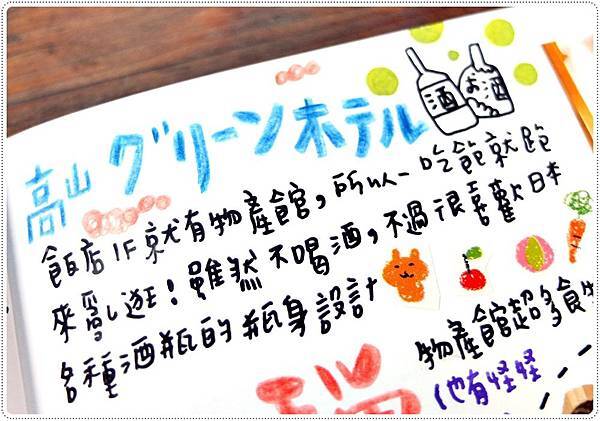 高山グリーンホテル
酒
お酒
飯店1F就有物產館，所以一吃飽就跑
來這逛！雖然不喝酒，不過很喜歡日本
各種酒瓶的瓶身設計
物產館超多食
(也有怪怪